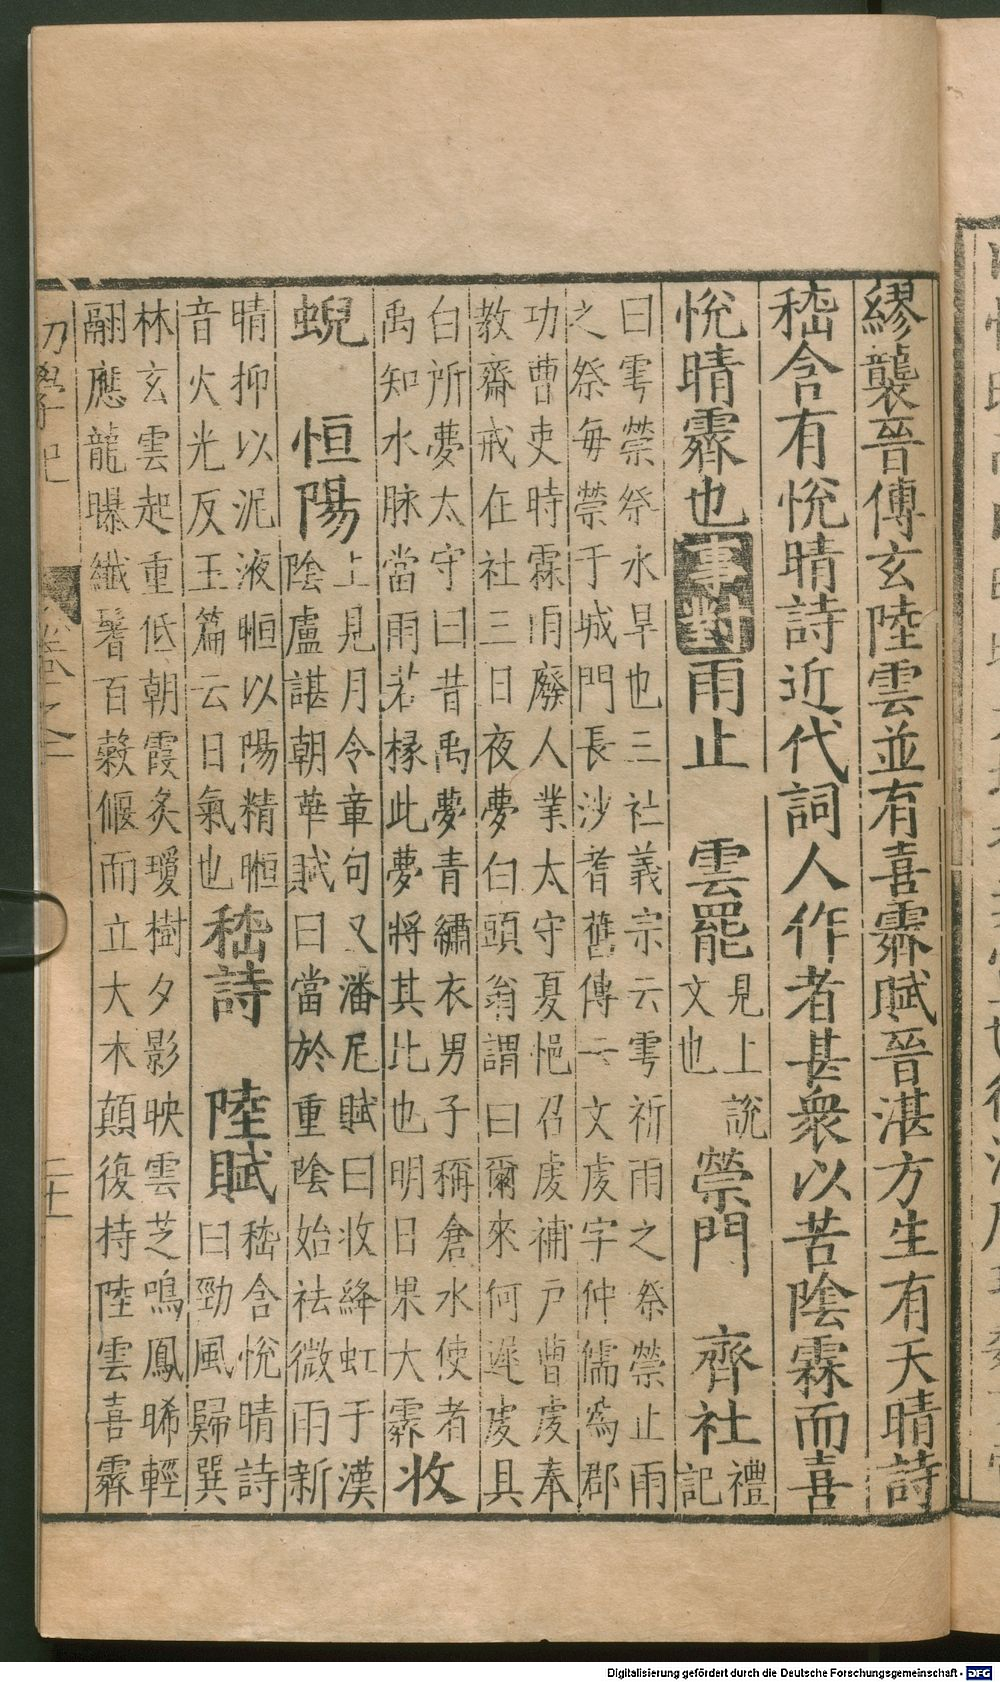 繆襲晉傅玄陸雲並有喜霽賦晉湛方生有天晴詩
嵇含有悅晴詩近代詞人作者甚衆以苦陰霖而喜
悅晴霽也事對雨止 雲罷見上文也 禜門 齊社說禮記
曰雩禜祭水旱也三社義宗云雩祈雨之祭禜止雨
之祭每禜于城門長沙耆舊傳云文虔字仲儒爲郡
功曹吏時霖雨廢人業太守夏悒召虔補戶曹虔奉
教齋戒在社三日夜夢白頭翁謂曰爾來何遲虔具
白所夢太守曰昔禹夢青繡衣男子稱倉水使者
禹知水脉當雨若椽此夢將其比也明日果大霽收
蜺 恒陽上見月令章句又潘尼賦曰收絳虹于漢
陰盧諶朝華賦曰當於重陰始祛微雨新
晴抑以泥液暅以陽精暅
音火光反玉篇云日氣也嵇詩 陸賦嵇含悅晴詩
曰勁風歸巽
林玄雲起重低朝霞炙瓊樹夕影映雲芝鳴鳳晞輕
翮應龍曝纖鬐百穀偃而立大木顛復持陸雲喜霽
初學記
卷之二
二十
Digitalisierung gefördert durch die Deutsche Forschungsgemeinschaft - DFG